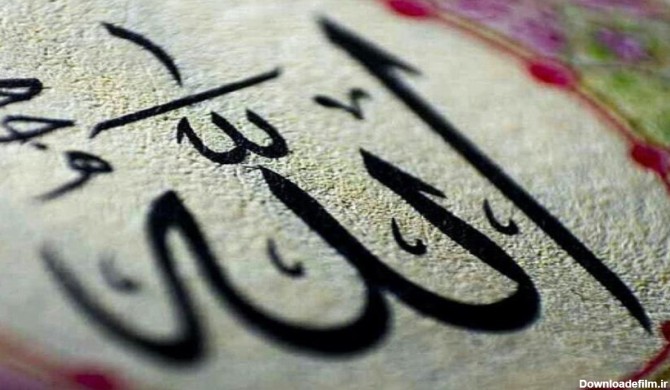 الله
Downloadefilm.ir